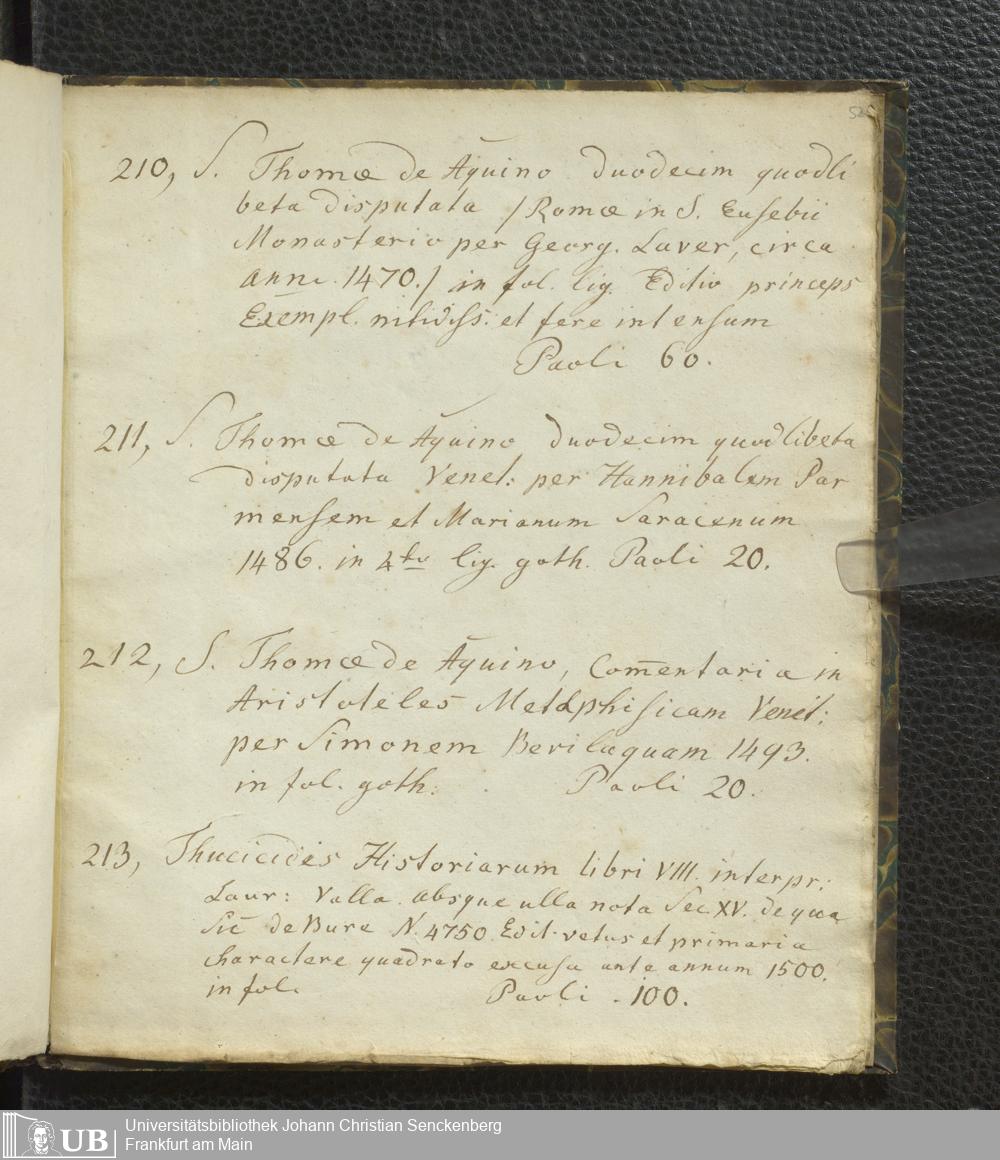 210, S. Thomæ de Aq̃uino duodecim quodli
beta disputata /Romæ in S. Eusebii
Monasterio per Georg. Laver, circa
ann. 1470./ in fol. lig. Editio princeps
Exempl. nitidiss: et fere intensum
Paoli 60.
211, S. Thomæ de Aq̃uino duodecim quodlibeta
disputata Venet: per Hannibalem Par
mensem et Marianum Saracenum
1486. in 4to lig. goth. Paoli 20.
212, S. Thomæ de Aq̃uino, Com̃entaria in
Aristoteles Metaphisicam Venet:
per Simonem Berilaquam 1493.
in fol. goth: Paoli 20.
213, Thucicides Historiarum libri VIII. interpr:
Laur: Valla. absque ulla nota Sec XV. de qua
Sic de Bure N. 4750. Edit. vetus et primaria
charactere quadrato excusa ante annum 1500.
in fol. Paoli 100.
UB
Universitätsbibliothek Johann Christian Senckenberg
Frankfurt am Main